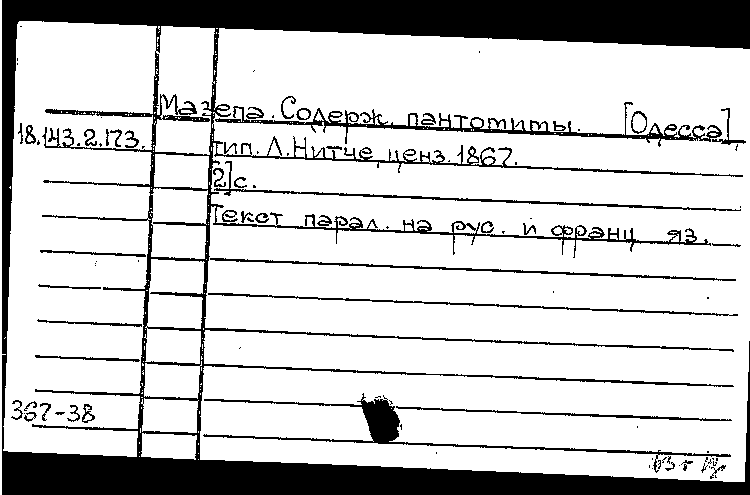 Мазепа. Содерж. пантомимы. [Одесса],
18.143.2.173.
тип. Л. Нитче, ценз. 1867.
[2] с.
Текст парал. на рус. и франц. яз.
367-38